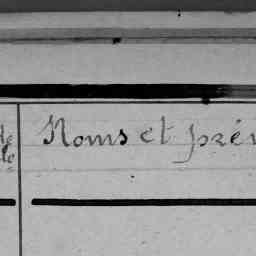 de Noms et prén